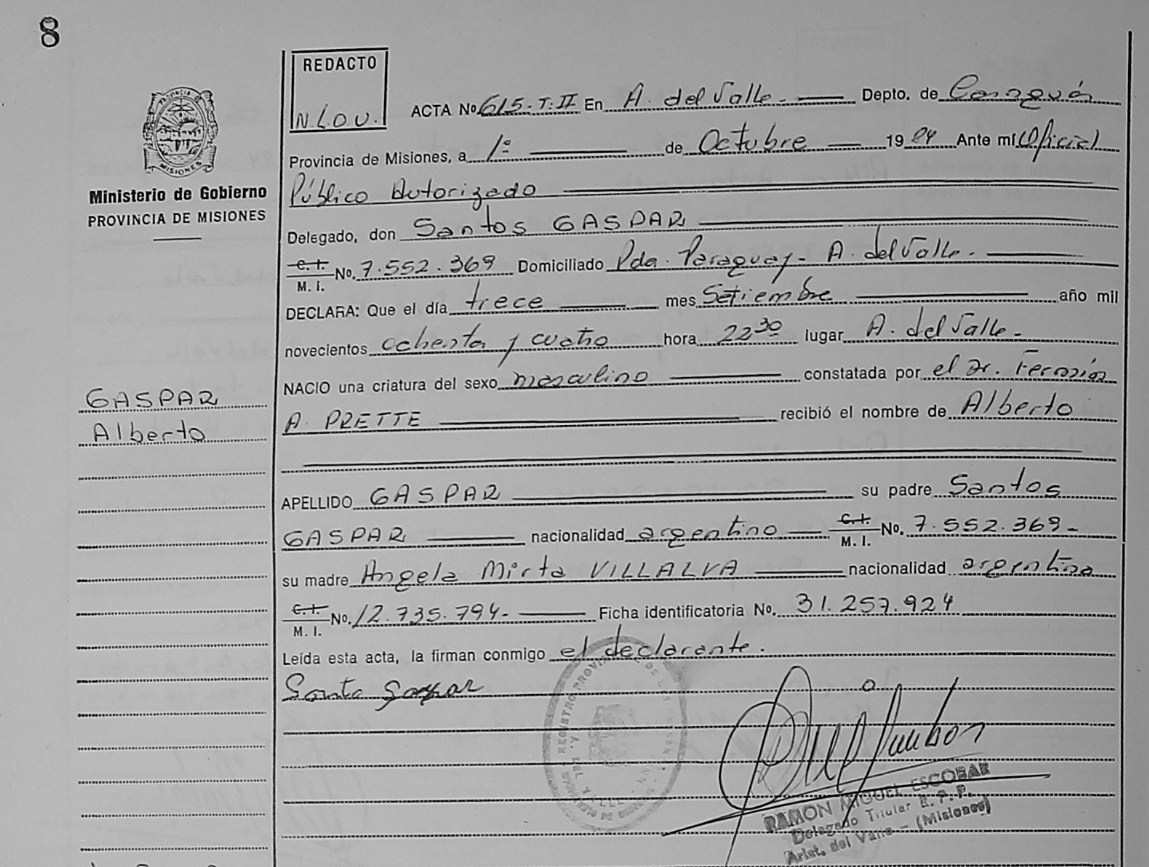 8
REDACTO
N.L.O.V.
ACTA No 615-T.II En A. del Valle - Depto. de Cainguás
Provincia de Misiones, a 1º de Octubre 1984 Ante mí Oficial
Público Autorizado
Delegado, don Santos GASPAR
C.I. M.I. No. 7.552.369 Domiciliado Pda. Paraguay - A. del Valle -
DECLARA: Que el día trece mes Setiembre año mil
novecientos ochenta y cuatro hora 22 30 lugar A. del Valle -
NACIO una criatura del sexo masculino constatada por el Dr.
A. PRETTE recibió el nombre de Alberto
APELLIDO GASPAR su padre Santos
GASPAR nacionalidad argentino C.I. M.I. No. 7.552.369-
su madre Angela Mirta VILLALVA nacionalidad argentina
C.I. M.I. No. 12.735.794- Ficha identificatoria No. 31.257.924
Leída esta acta, la firman conmigo el declarante.
Santo Gaspar
RAMON MIGUEL ESCOBAR
Delegado Titular R.P.P.
Arist. del Valle - (Misiones)
MISIONES
Ministerio de Gobierno
PROVINCIA DE MISIONES
GASPAR
Alberto